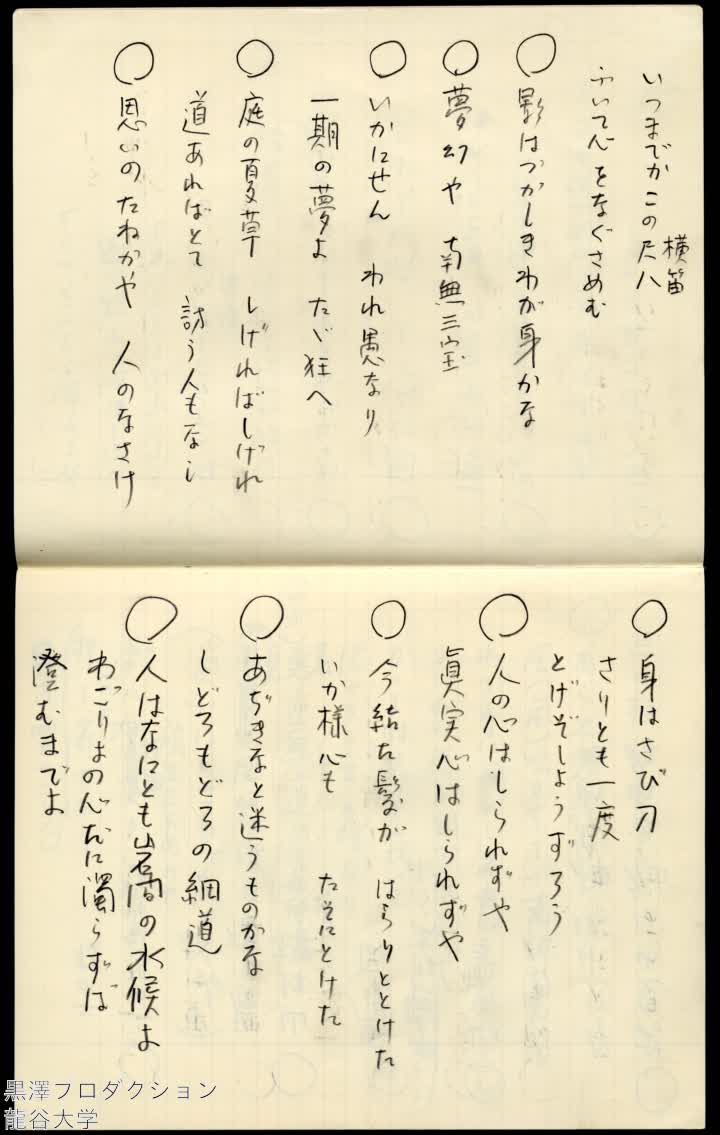 いつまでかこの尺八
横笛
ふいて心をなぐさめむ
○影はづかしきわが身かな
○夢幻や 南無三宝
○いかにせん われ愚なり
一期の夢よ たゞ狂へ
○庭の夏草 しげればしげれ
道あればとて 訪う人もなし
○思いのたねかや 人のなさけ
○身はさび刀
さりとも一度
とげぞしようずろう
○人の心はしられずや
眞実心はしられずや
○今結た髪が はらりととけた
いか様心も たそにとけた
○あぢきなと迷うものかな
しどろもどろの細道
○人はなにとも岩間の水候よ
わごりょの心だに濁らずば
澄むまでよ
黒澤プロダクション
龍谷大学